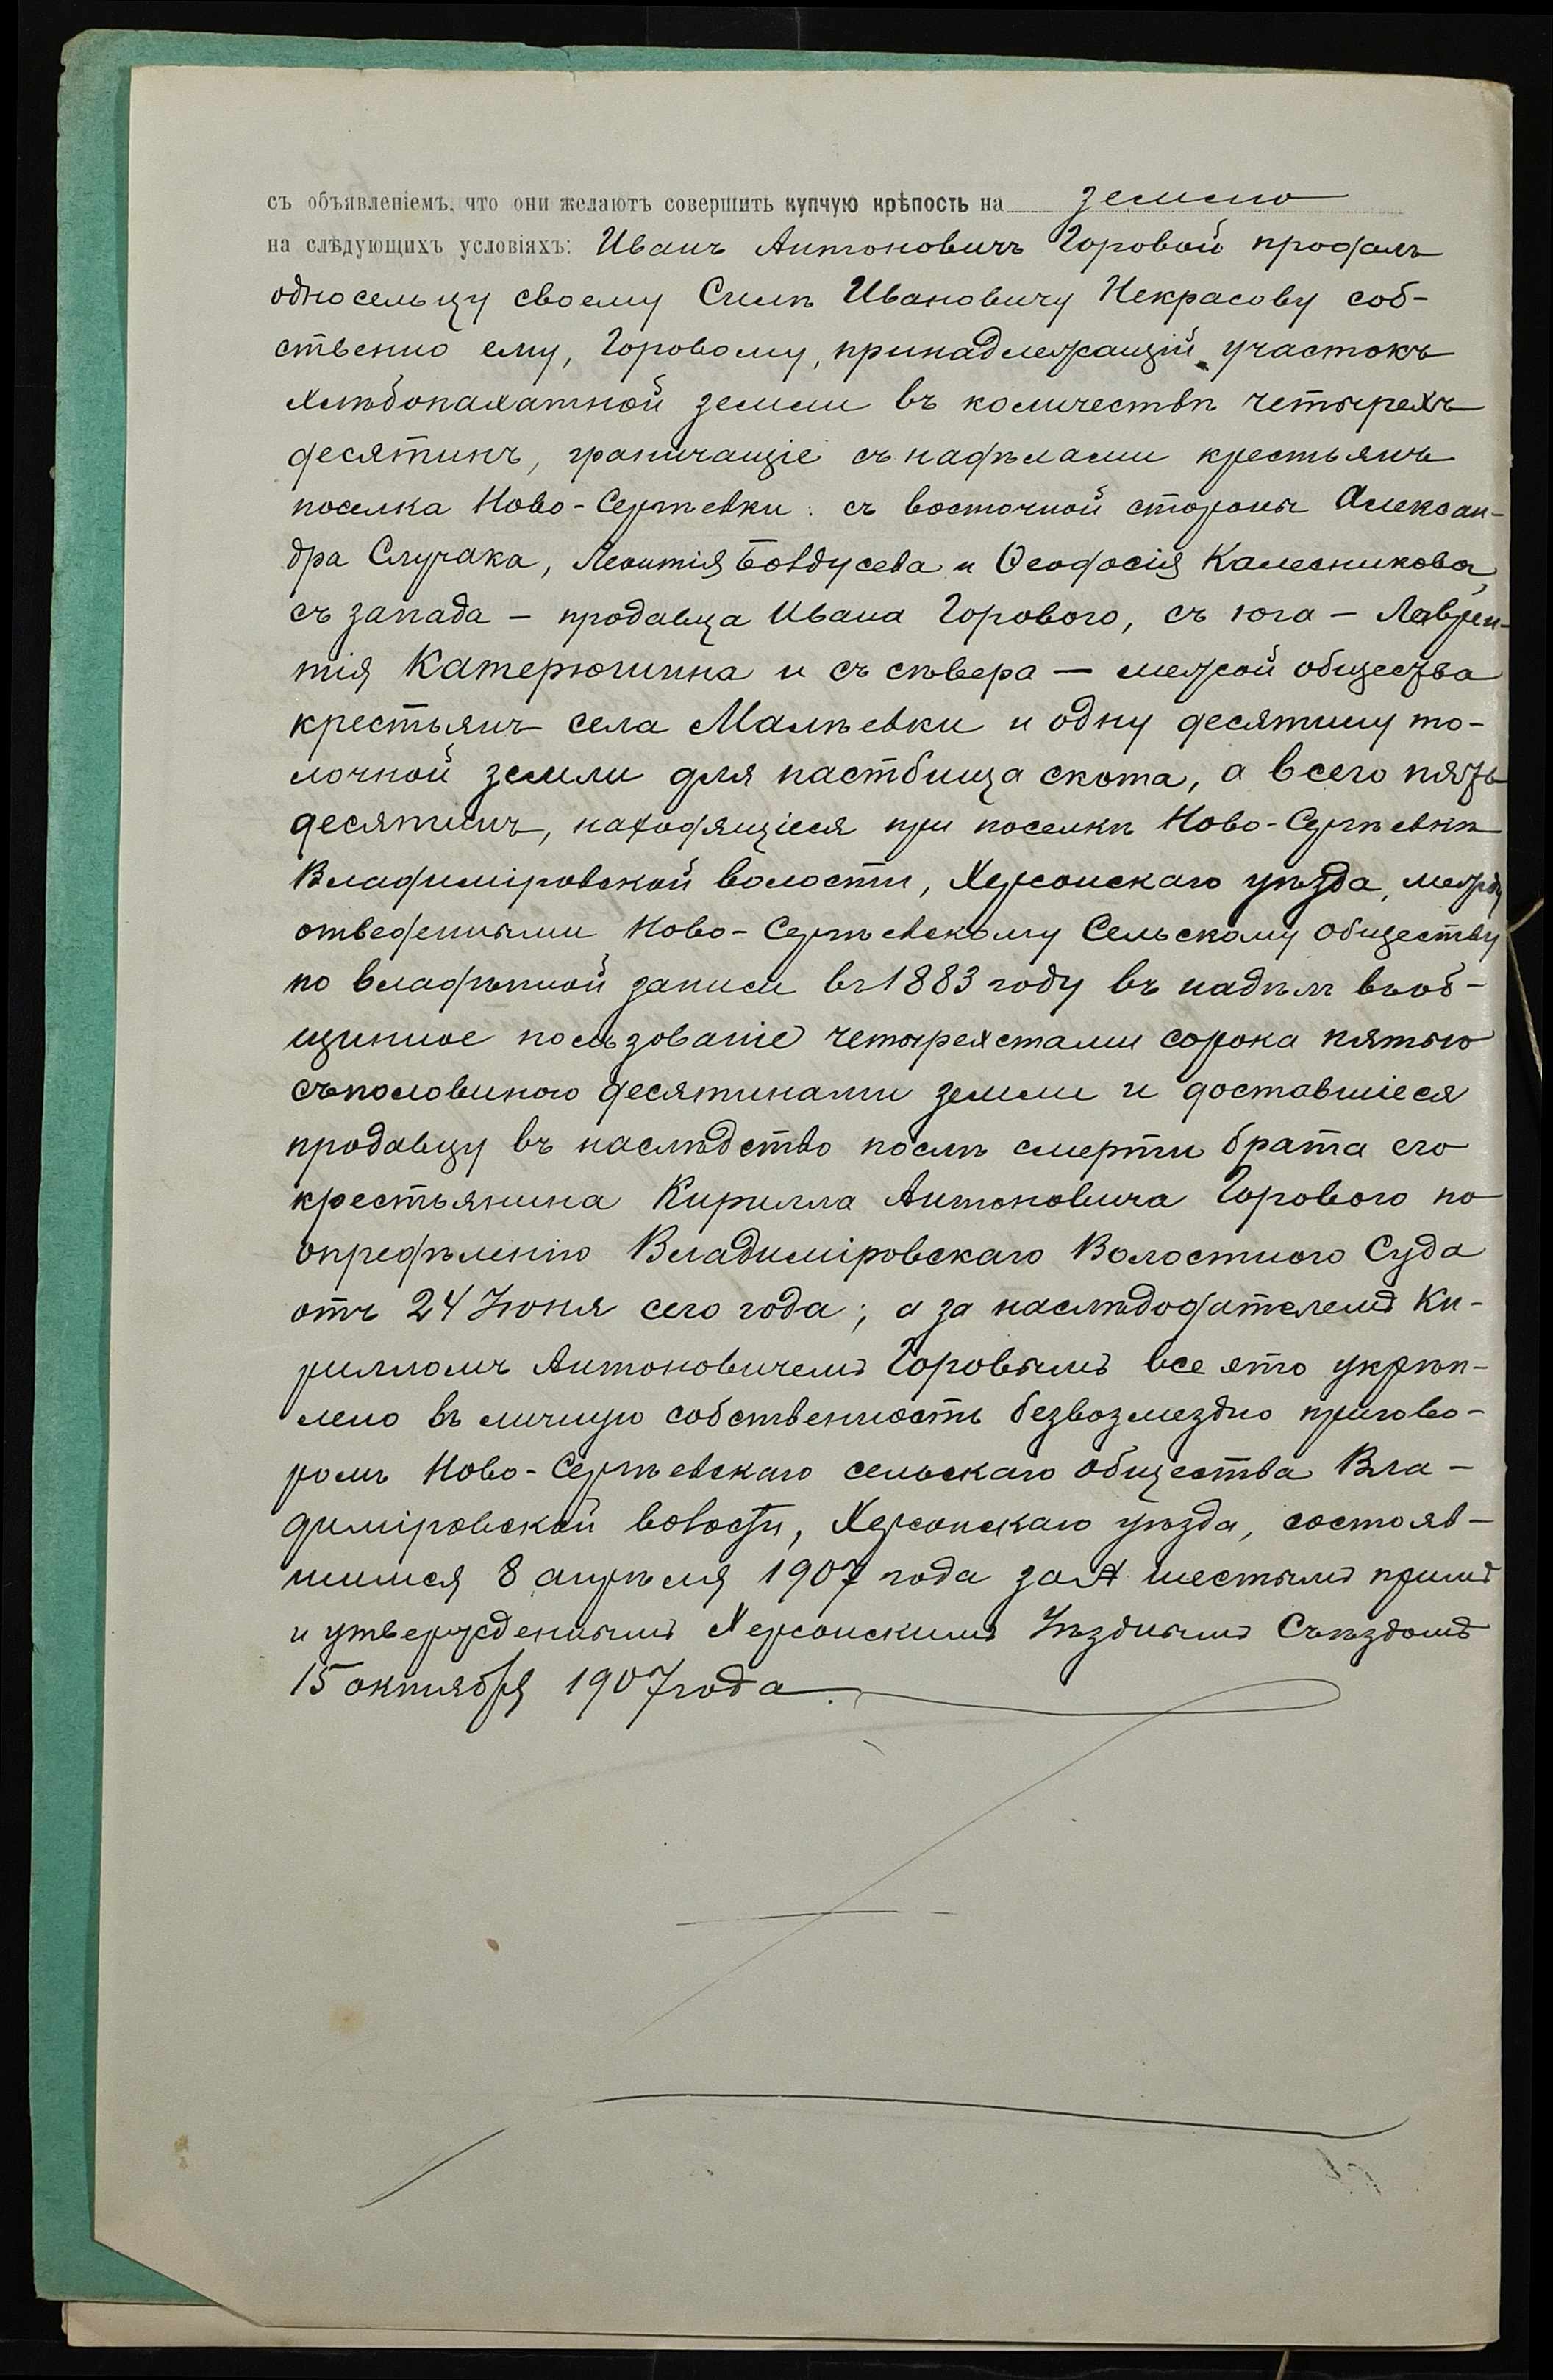 съ объявленіемъ, что они желаютъ совершить купчую крѣпость на землю
на слѣдующихъ условіяхъ: Иванъ Антоновичъ Горовой продалъ
односельцу своему Силѣ Ивановичу Некрасову соб-
ственно ему, Горовому, принадлежащій участокъ
хлѣбопахатной земли въ количествѣ четырехъ
десятинъ, граничащіе съ надѣлами крестьянъ
поселка Ново-Сергѣевки: съ восточной стороны Алексан-
дра Случака, Леонтія Бовдусева и Ѳеодосія Калесникова,
съ запада – продавца Ивана Горового, съ юга – Лаврен-
тія Катерюгина и съ сѣвера – межой общества
крестьянъ села Малѣевки и одну десятину то-
лочной земли для пастбища скота, а всего пять
десятинъ, находящіеся при поселкѣ Ново-Сергѣевкѣ
Владиміровской волости, Херсонскаго уѣзда, между
отведенными Ново-Сергѣевскому Сельскому обществу
по владѣнной записи въ 1883 году въ надѣлъ въ об-
щинное пользованіе четырехстами сорока пятью
съ половиною десятинами земли и доставшіеся
продавцу въ наслѣдство послѣ смерти брата его
крестьянина Кирилла Антоновича Горового по
опредѣленію Владиміровскаго Волостного Суда
отъ 24 Іюня сего года; а за наслѣдодателемъ Ки-
рилломъ Антоновичемъ Горовымъ все это укрѣп-
лено въ личную собственность безвозмездно пригово-
ромъ Ново-Сергѣевскаго сельскаго общества Вла-
диміровской волости, Херсонскаго уѣзда, состояв-
шимся 8 апрѣля 1907 года за № шестымъ
и утвержденнымъ Херсонскимъ Уѣзднымъ Съѣздомъ
15 октября 1907 года